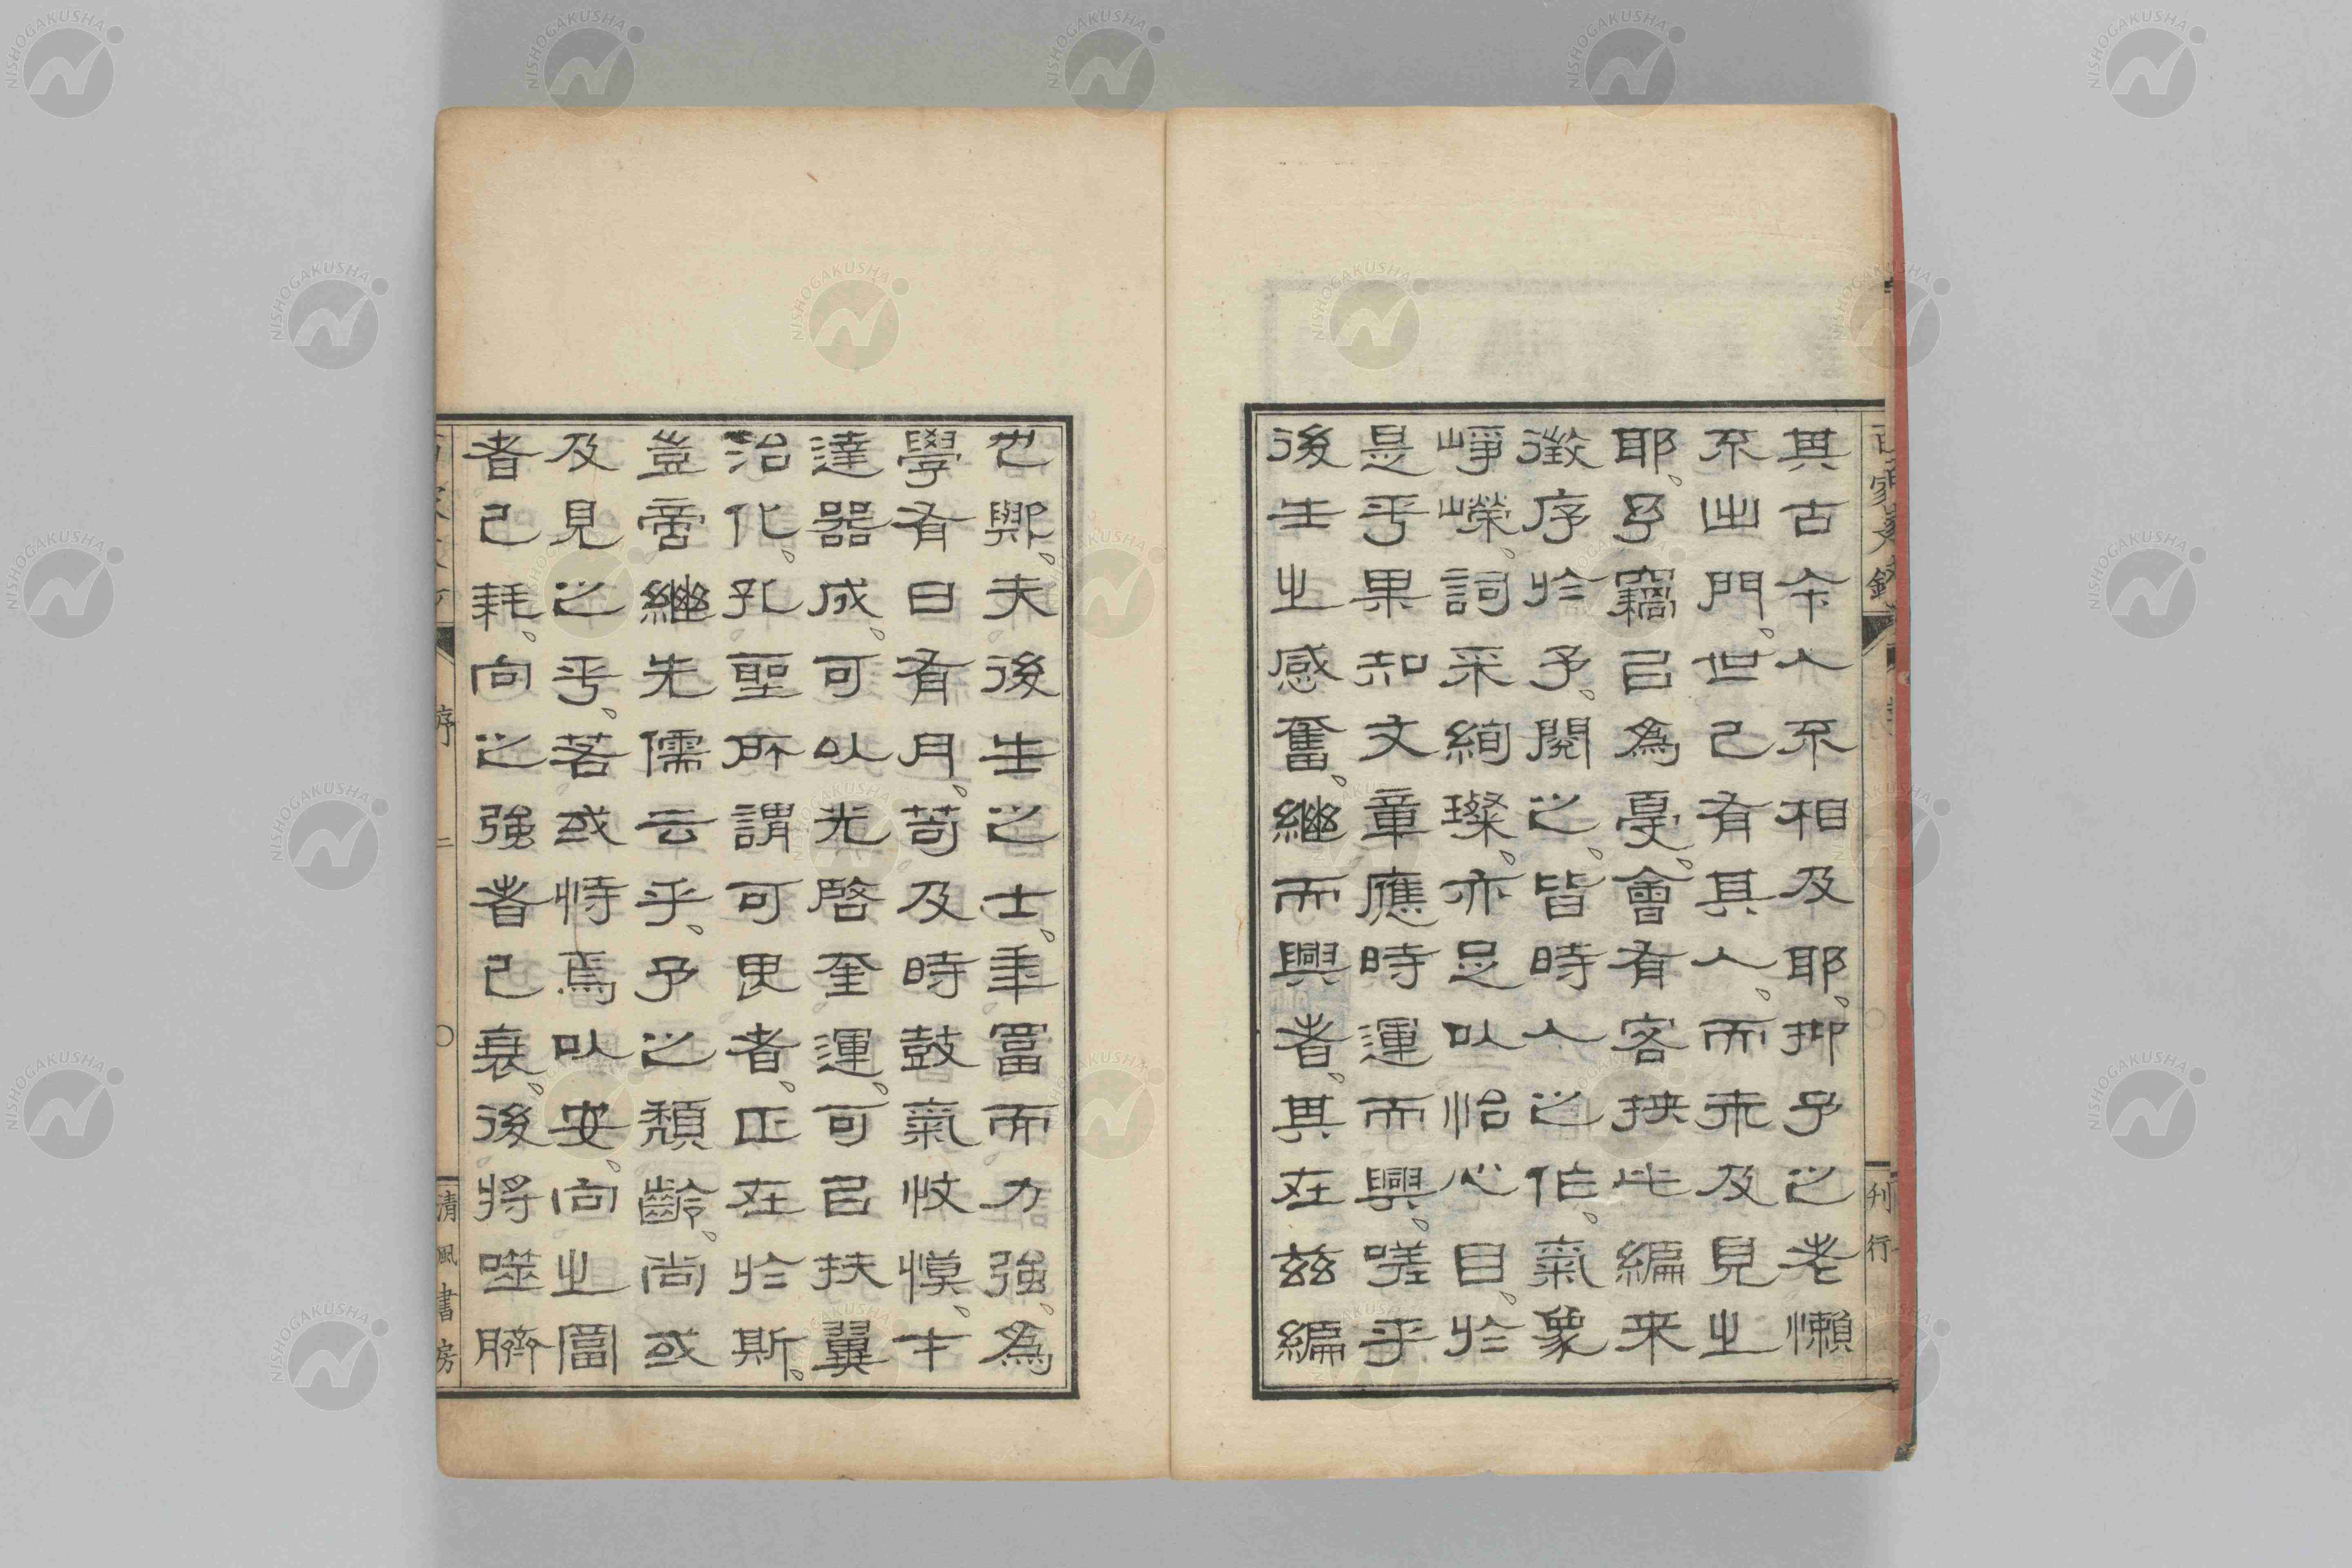 其古今人不相及耶抑予之老懶
不出門世已有其人而未及見之
耶予竊已為憂會有客挾此編来
徵序於予閱之皆時人之作氣象
崢嶸詞采絢璨亦足以怡心目於
是乎果知文章應時運而興嗟乎
後生之感奮繼而興者其在茲編
也歟夫後生之士年富而力強為
學有日有月苟及時鼓氣忮慔才
達器成可以光啓奎運可已扶翼
治化孔聖所謂可畏者正在於斯
豈啻繼先儒云乎予之頹齡尚或
及見之乎若或恃焉以安向之富
者已耗向之強者已衰後將噬臍
序 二
清風書房
刊行
NISHOGAKUSHA